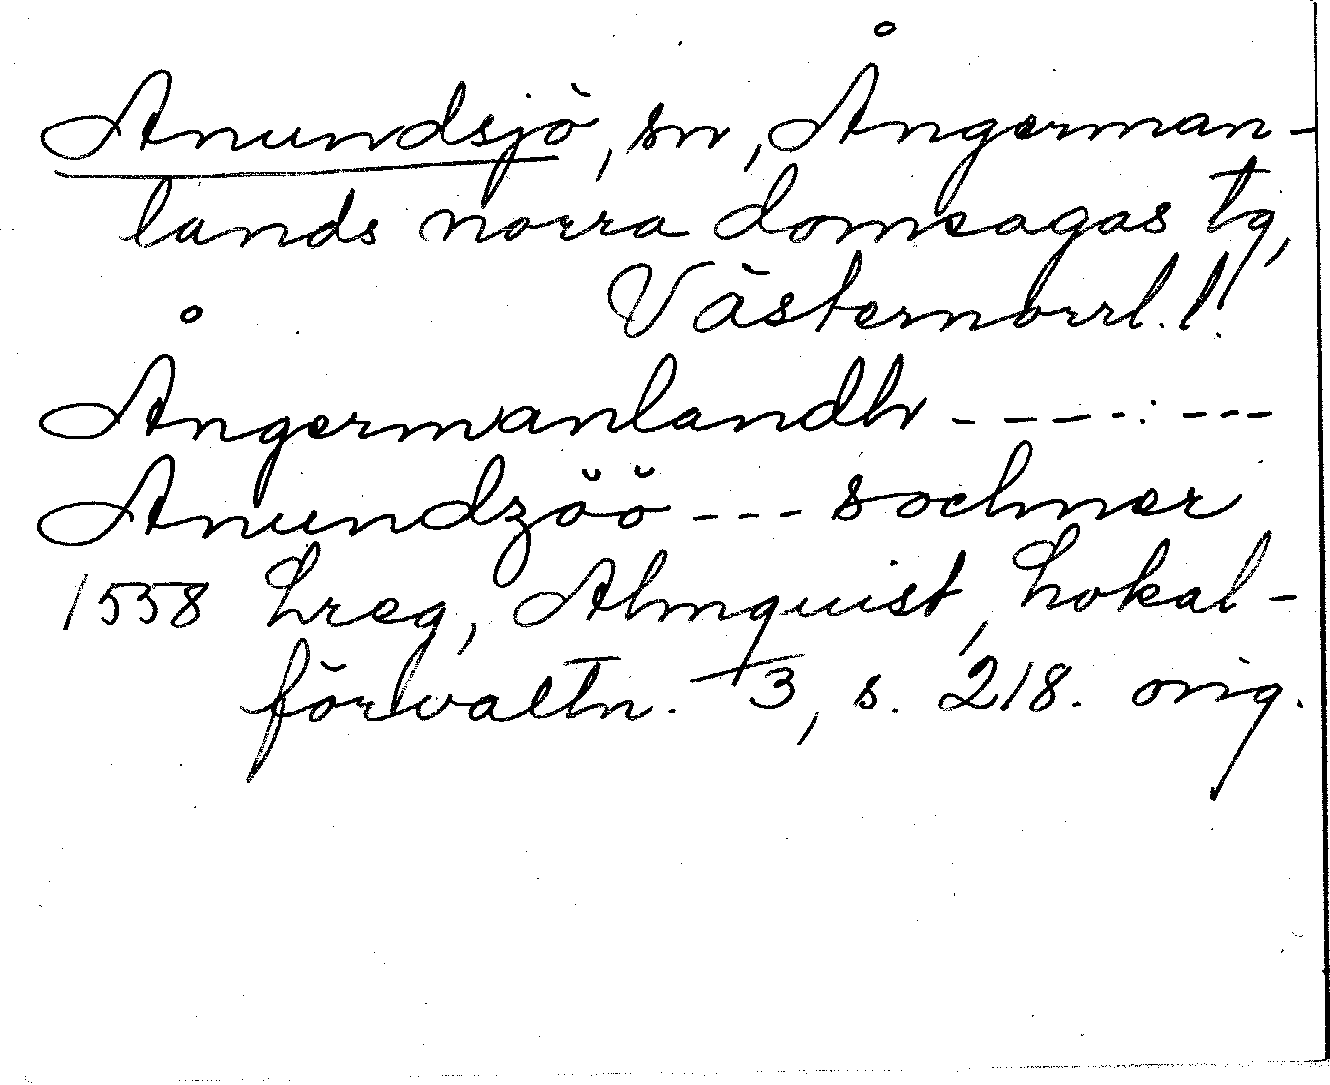 Anundsjö, sn, Ångerman-
lands norra domsagas tg,
Västernorrl. l.
Ångermanlandh - - - - : - - -
Anundzöö - - - sochner
1558 Lreg, Almquist, Lokal-
förvaltn. 3, s. 218. orig.